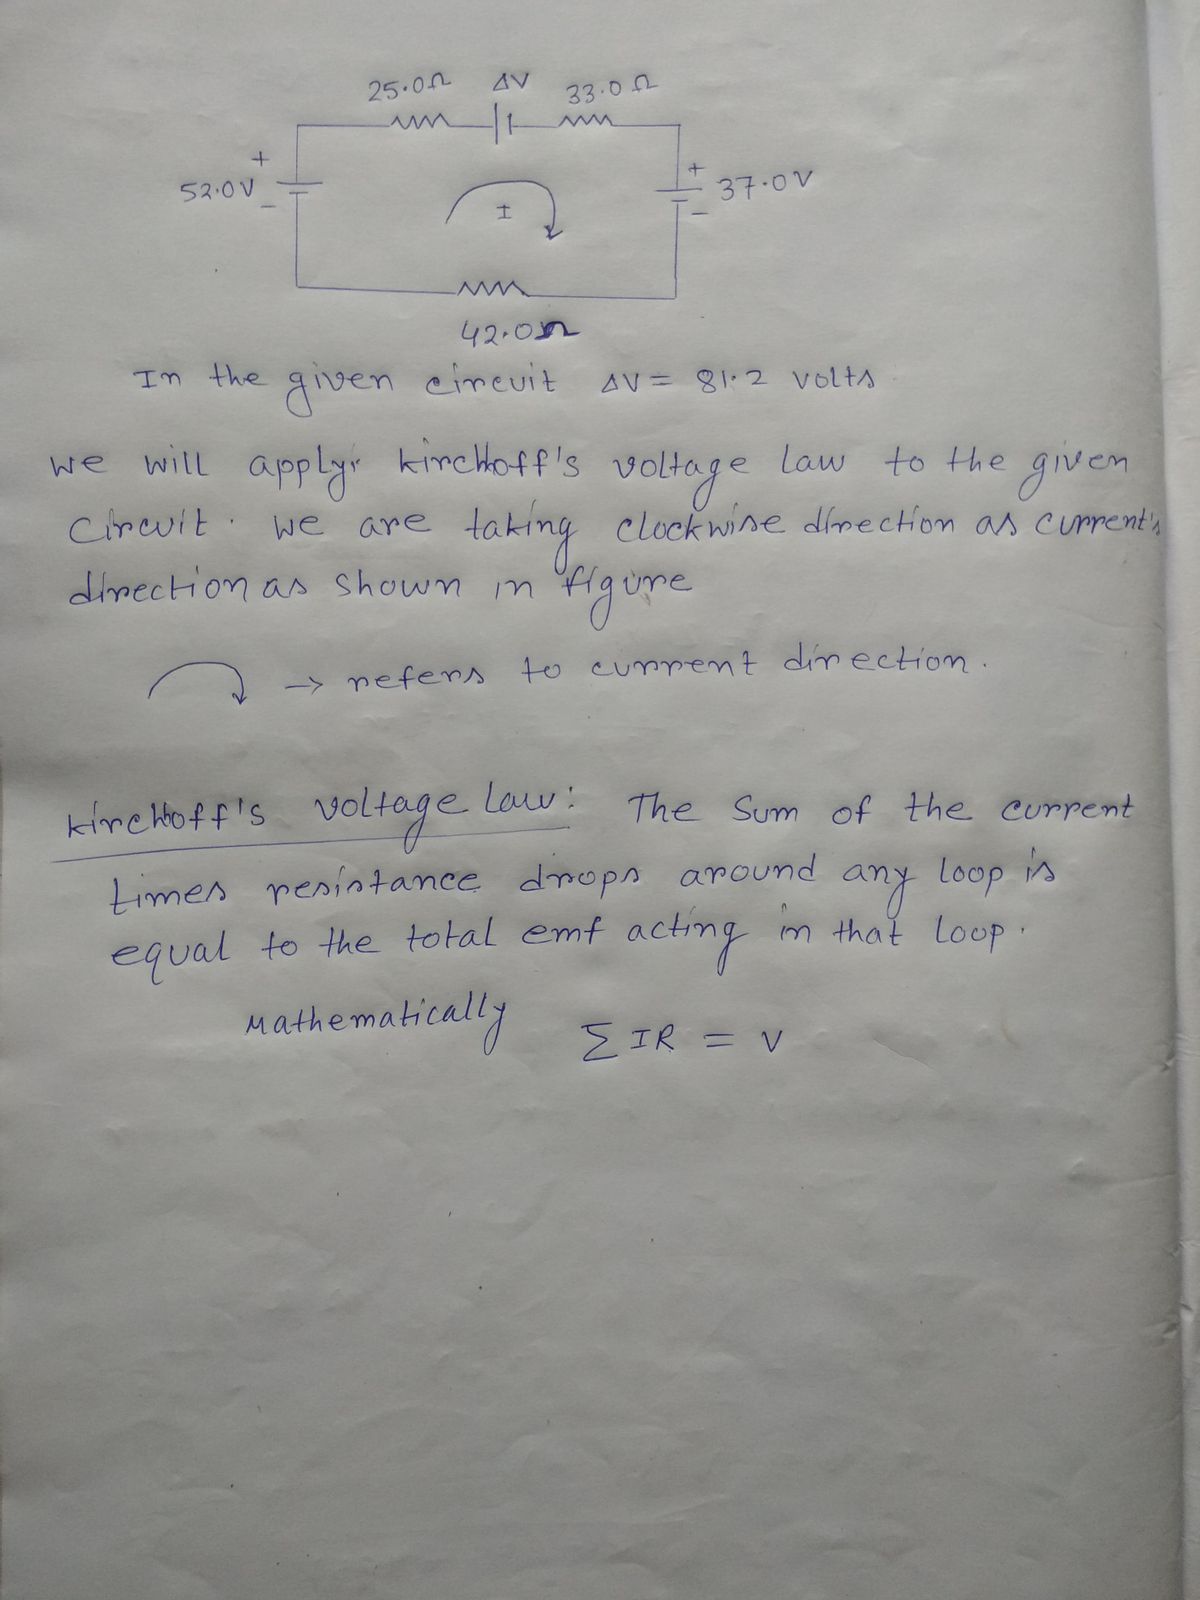 25.0Ω ΔV 33.0Ω
+ +
52.0V 37.0V
- -
I
42.0Ω
In the given circuit ΔV = 81.2 volts
we will apply kirchhoff's voltage law to the given
circuit. we are taking clockwise direction as current's
direction as shown in figure
→ refers to current direction.
kirchhoff's voltage law: The sum of the current
times resistance drops around any loop is
equal to the total emf acting in that loop.
Mathematically Σ IR = V